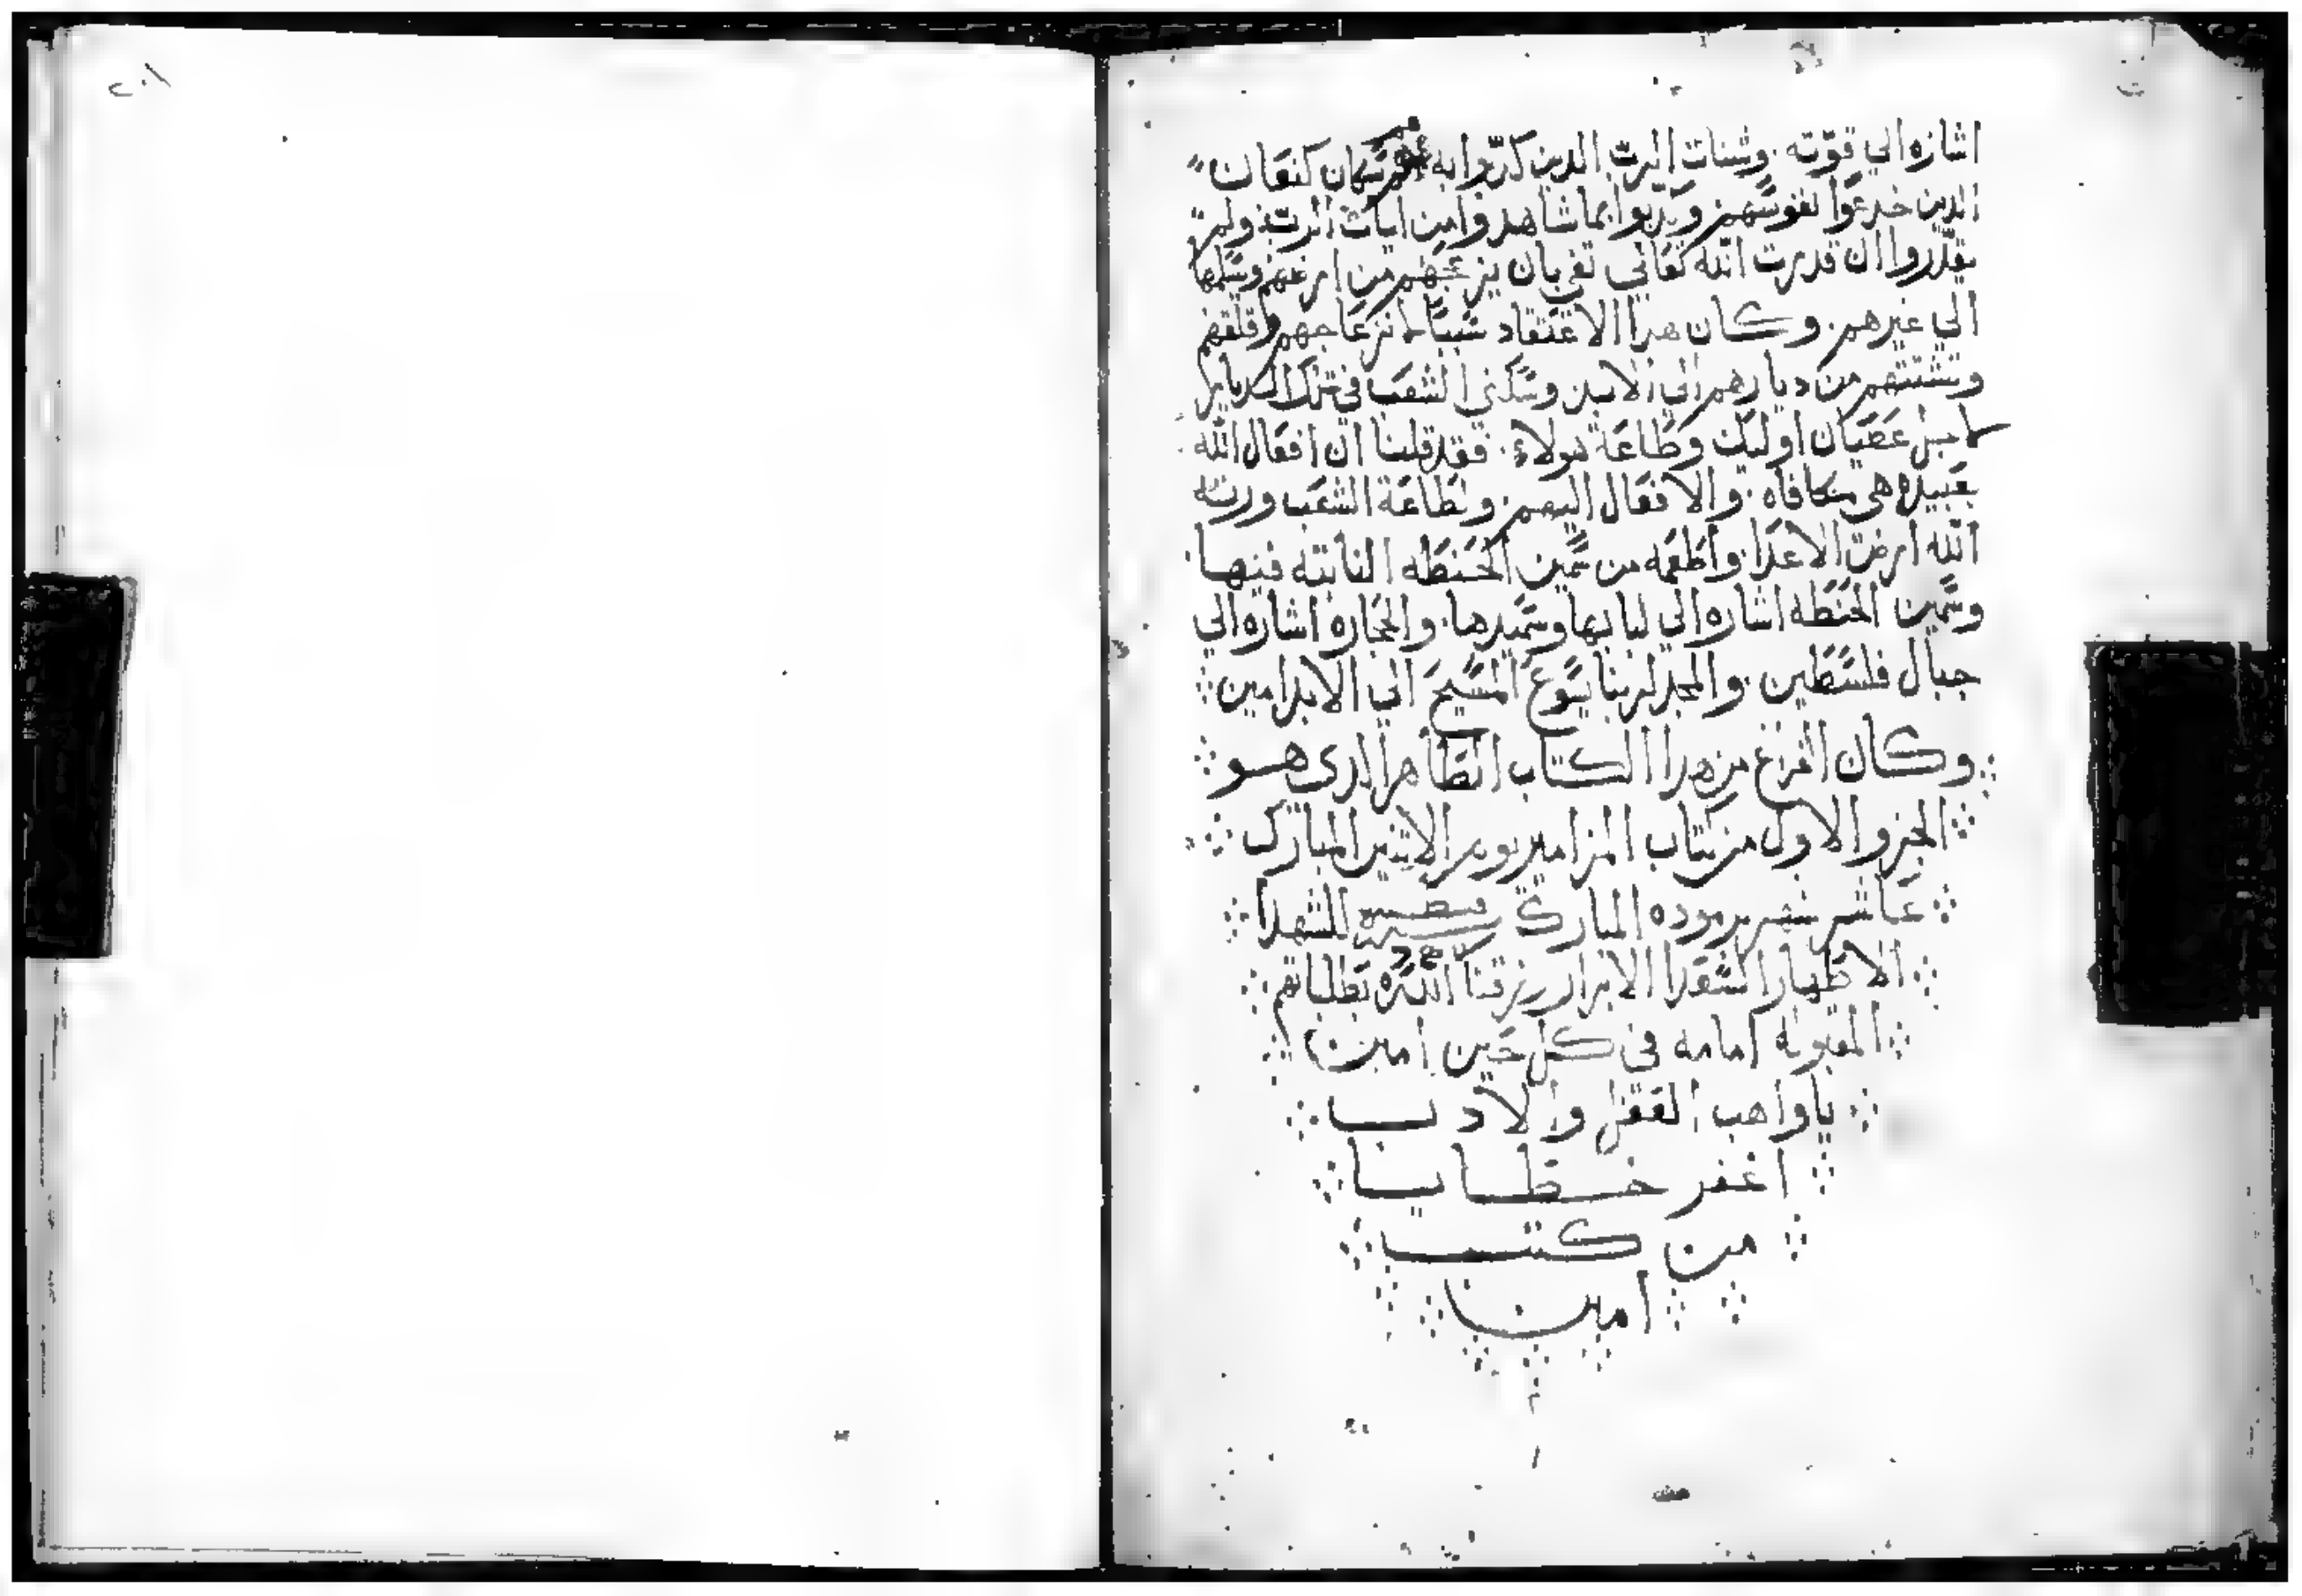 اشاره الي قوّته. وشنات الربّ الدين كدّبوا به هم سكان كنعان
الدين خدعوا نفوسهم وكدبوا بما شاهدوا من ايات الربّ. ولم
يقدّروا ان قدرت اللّه تعالي تفي بان يزعجهم من ارضهم ويسلمها
الي غيرهم. وكان هدا الاعتقاد سببًا لانزعاجهم وقلقهم
وتشتتهم من ديارهم الي الابد وسكني الشعب في تلك الديار
لاجل عصيان اوليك وطاعة هولاء. فقد قلنا انّ افعال اللّه
بعبيده هي مكافاه. والافعال اليهم. وبطاعة الشعب ورث
اللّه ارض الاعدا. واطعمه من سَمين الحنطه النابته فيها.
وسمين الحنطه اشاره الي لبابها وسميدها. والحجاره اشاره الي
جبال فلسطين. والمجد لربنا يسوع المسيح الي الابد امين
وكان الفراغ من هدا الكتاب الطاهر الدي هو
الجزو الاول من كتاب المزامير يوم الاتنين المبارك
عاشر شهر برموده المبارك سنة للشهدا
الاطهار السعدا الابرار رزقنا اللّه بطلباتهم
المقبوله امامه في كل حين امين
ياواهب العقل والادب
اغفر خطايا
من كتب
امين